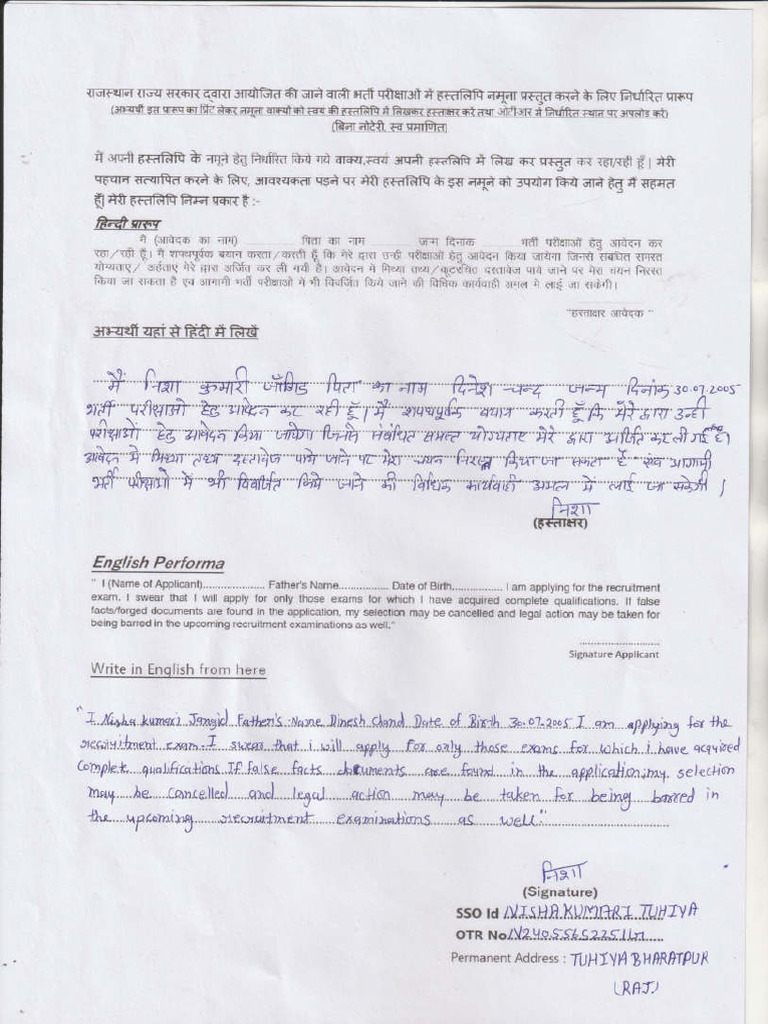 राजस्थान राज्य सरकार द्वारा आयोजित की जाने वाली भर्ती परीक्षाओं में हस्तलिपि नमूना प्रस्तुत करने के लिए निर्धारित प्रारूप
(अभ्यर्थी इस प्रारूप का प्रिंट लेकर नमूना वाक्यों को स्वयं की हस्तलिपि में लिखकर हस्ताक्षर करें तथा ओटीआर में निर्धारित स्थान पर अपलोड करें)
(बिना नोटेरी, स्व प्रमाणित)
मैं अपनी हस्तलिपि के नमूने हेतु निर्धारित किये गये वाक्य,स्वयं अपनी हस्तलिपि में लिख कर प्रस्तुत कर रहा/रही हूँ | मेरी
पहचान सत्यापित करने के लिए, आवश्यकता पड़ने पर मेरी हस्तलिपि के इस नमूने को उपयोग किये जाने हेतु मैं सहमत
हूँ| मेरी हस्तलिपि निम्न प्रकार है :-
हिन्दी प्रारूप
मै (आवेदक का नाम) .............. पिता का नाम .............. जन्म दिनांक .......... भर्ती परीक्षाओं हेतु आवेदन कर
रहा/रही हूँ। मैं शपथपूर्वक बयान करता/करती हूँ कि मेरे द्वारा उन्ही परीक्षाओं हेतु आवेदन किया जायेगा जिनसे संबंधित समस्त
योग्यताए/ अर्हताए मेरे द्वारा अर्जित कर ली गयी है। आवेदन में मिथ्या तथ्य/कूटरचित दस्तावेज पाये जाने पर मेरा चयन निरस्त
किया जा सकता है एवं आगामी भर्ती परीक्षाओं में भी विवर्जित किये जाने की विधिक कार्यवाही अमल में लाई जा सकेगी।
"हस्ताक्षर आवेदक"
अभ्यर्थी यहां से हिंदी में लिखें
मैं निशा कुमारी जाँगिड पिता का नाम दिनेश चन्द जन्म दिनांक 30.07.2005
भर्ती परीक्षाओ हेतु आवेदन कर रही हूँ। मैं शपथपूर्वक बयान करती हूँ कि मेरे द्वारा उन्ही
परीक्षाओं हेतु आवेदन किया जायेगा जिनसे संबंधित समस्त योग्यताए मेरे द्वारा अर्जित कर ली गई है।
आवेदन में मिथ्या तथ्य दस्तावेज पाये जाने पर मेरा चयन निरस्त किया जा सकता है एवं आगामी
भर्ती परीक्षाओ में भी विवर्जित किये जाने की विधिक कार्यवाही अमल में लाई जा सकेगी।
निशा
(हस्ताक्षर)
English Performa
" I (Name of Applicant)..................... Father's Name................ Date of Birth................ I am applying for the recruitment
exam. I swear that I will apply for only those exams for which I have acquired complete qualifications. If false
facts/forged documents are found in the application, my selection may be cancelled and legal action may be taken for
being barred in the upcoming recruitment examinations as well."
Signature Applicant
Write in English from here
"I Nisha kumari Jangid Father's Name Dinesh Chand Date of Birth 30.07.2005 I am applying for the
recruitment exam. I swear that i will apply for only those exams for which i have acquired
complete qualifications. If false facts documents are found in the application, my selection
may be cancelled and legal action may be taken for being barred in
the upcoming recruitment examinations as well."
निशा
(Signature)
SSO Id NISHAKUMARI TUHIYA
OTR No.
Permanent Address : TUHIYA BHARATPUR
(RAJ)